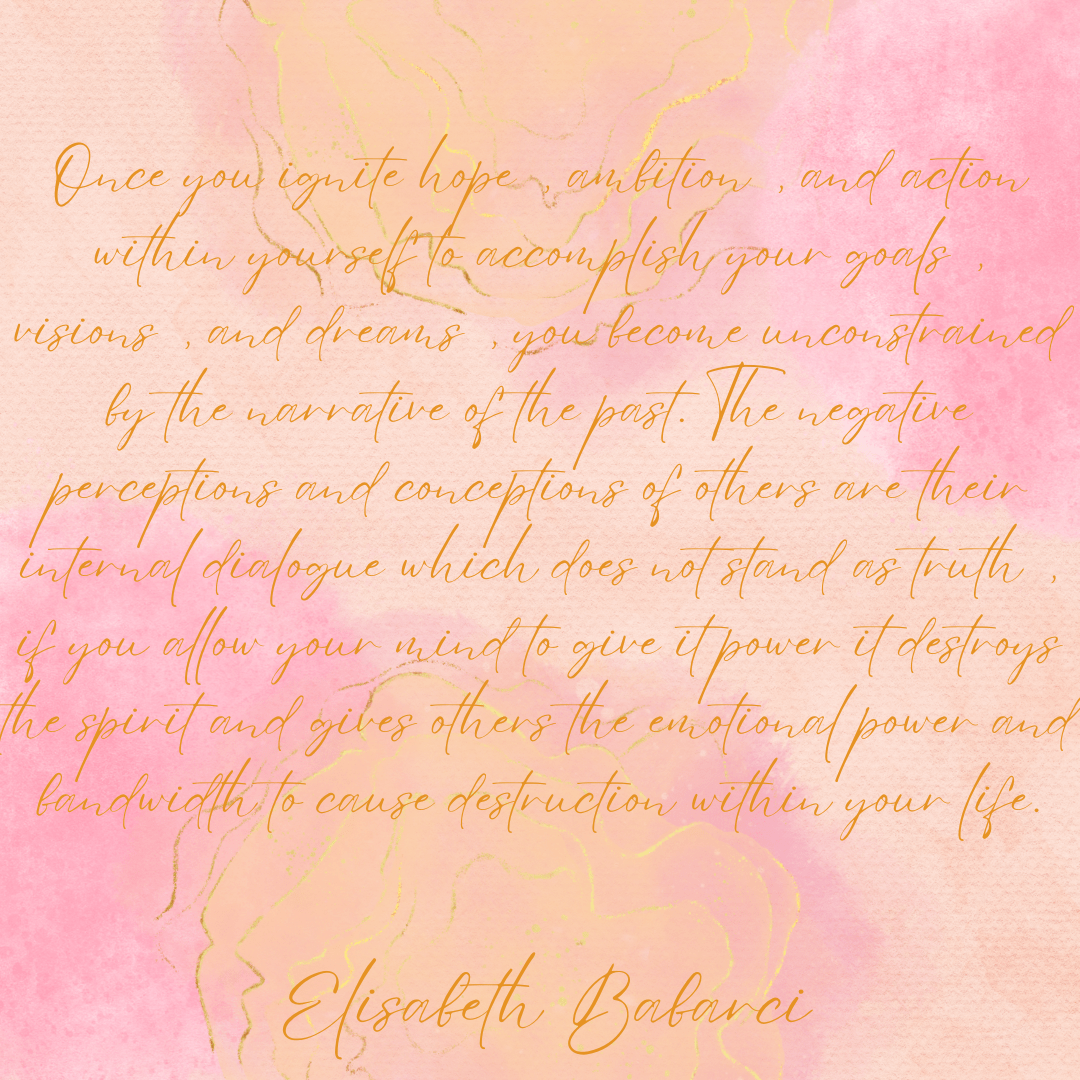 Once you ignite hope , ambition , and action
within yourself to accomplish your goals ,
visions , and dreams , you become unconstrained
by the narrative of the past. The negative
perceptions and conceptions of others are their
internal dialogue which does not stand as truth ,
if you allow your mind to give it power it destroys
the spirit and gives others the emotional power and
bandwidth to cause destruction within your life.
Elisabeth Babarci